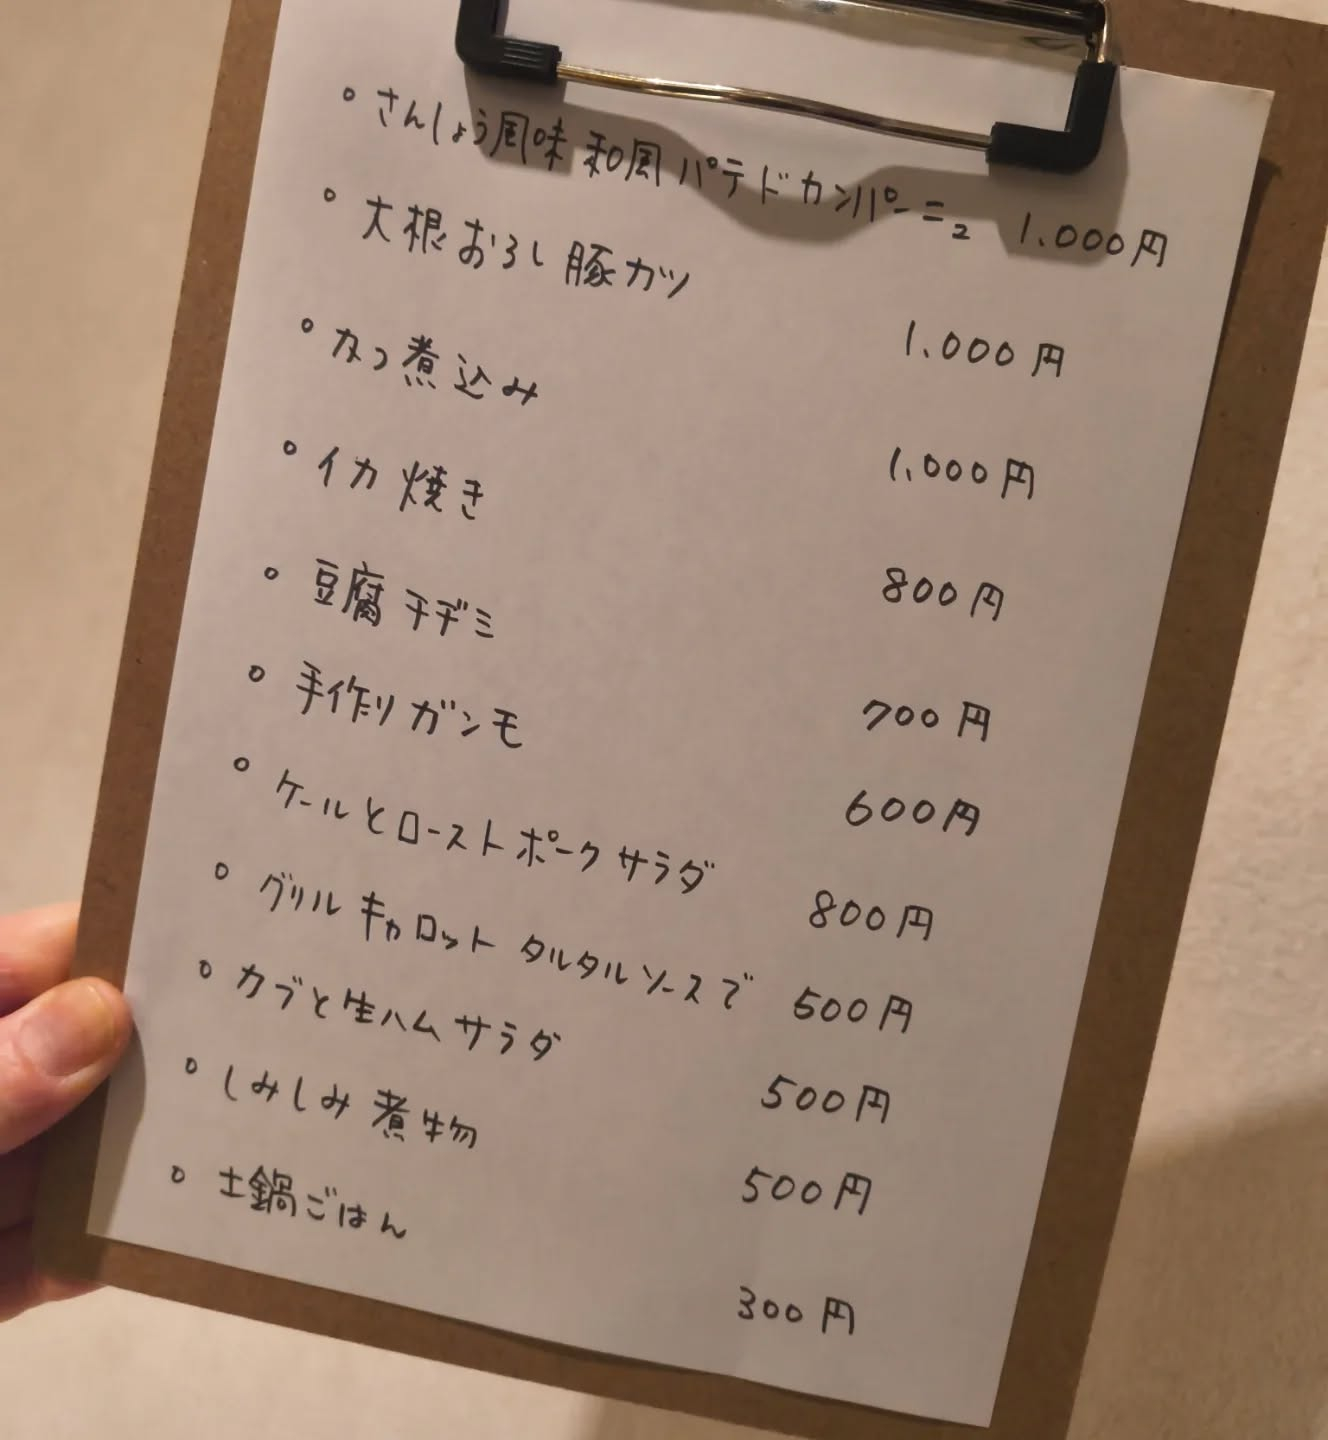 。さんしょう風味 和風 パテドカンパーニュ 1.000円
。大根おろし豚カツ 1.000円
。なつ煮込み 1.000円
。イカ焼き 800円
。豆腐チヂミ 700円
。手作りガンモ 600円
。ケールとローストポークサラダ 800円
。グリルキャロット タルタルソースで 500円
。カブと生ハムサラダ 500円
。しみしみ煮物 500円
。土鍋ごはん 300円